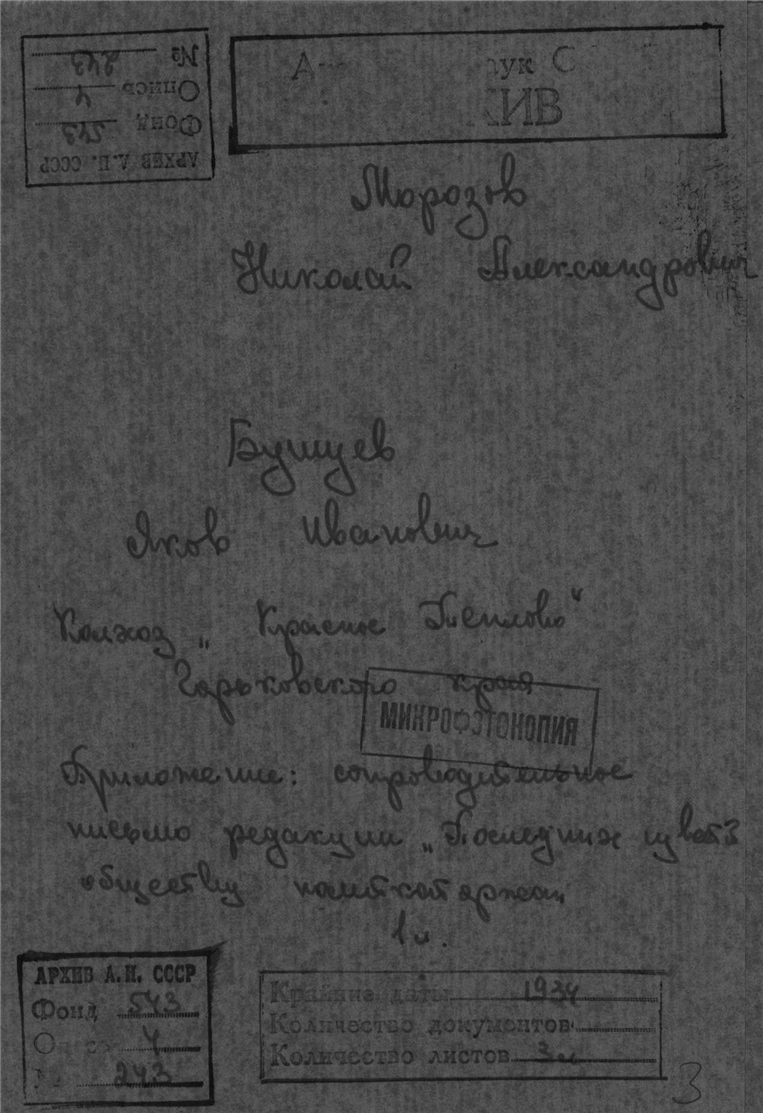 № 243
Опись 4
Фонд 543
АРХИВ А.Н. СССР
ук С
ИВ
Морозов
Николай Александрович
Бушуев
Яков Иванович
Колхоз „Красное Теплово“
Горьковского края
МИКРОФОТОКОПИЯ
Приложение: сопроводительное
письмо редакции „Последних
обществу политкаторжан
1 л.
АРХИВ А.Н. СССР
Фонд 543
О 4
243
Крайние даты 1934
Количество документов
Количество листов 3 л
3